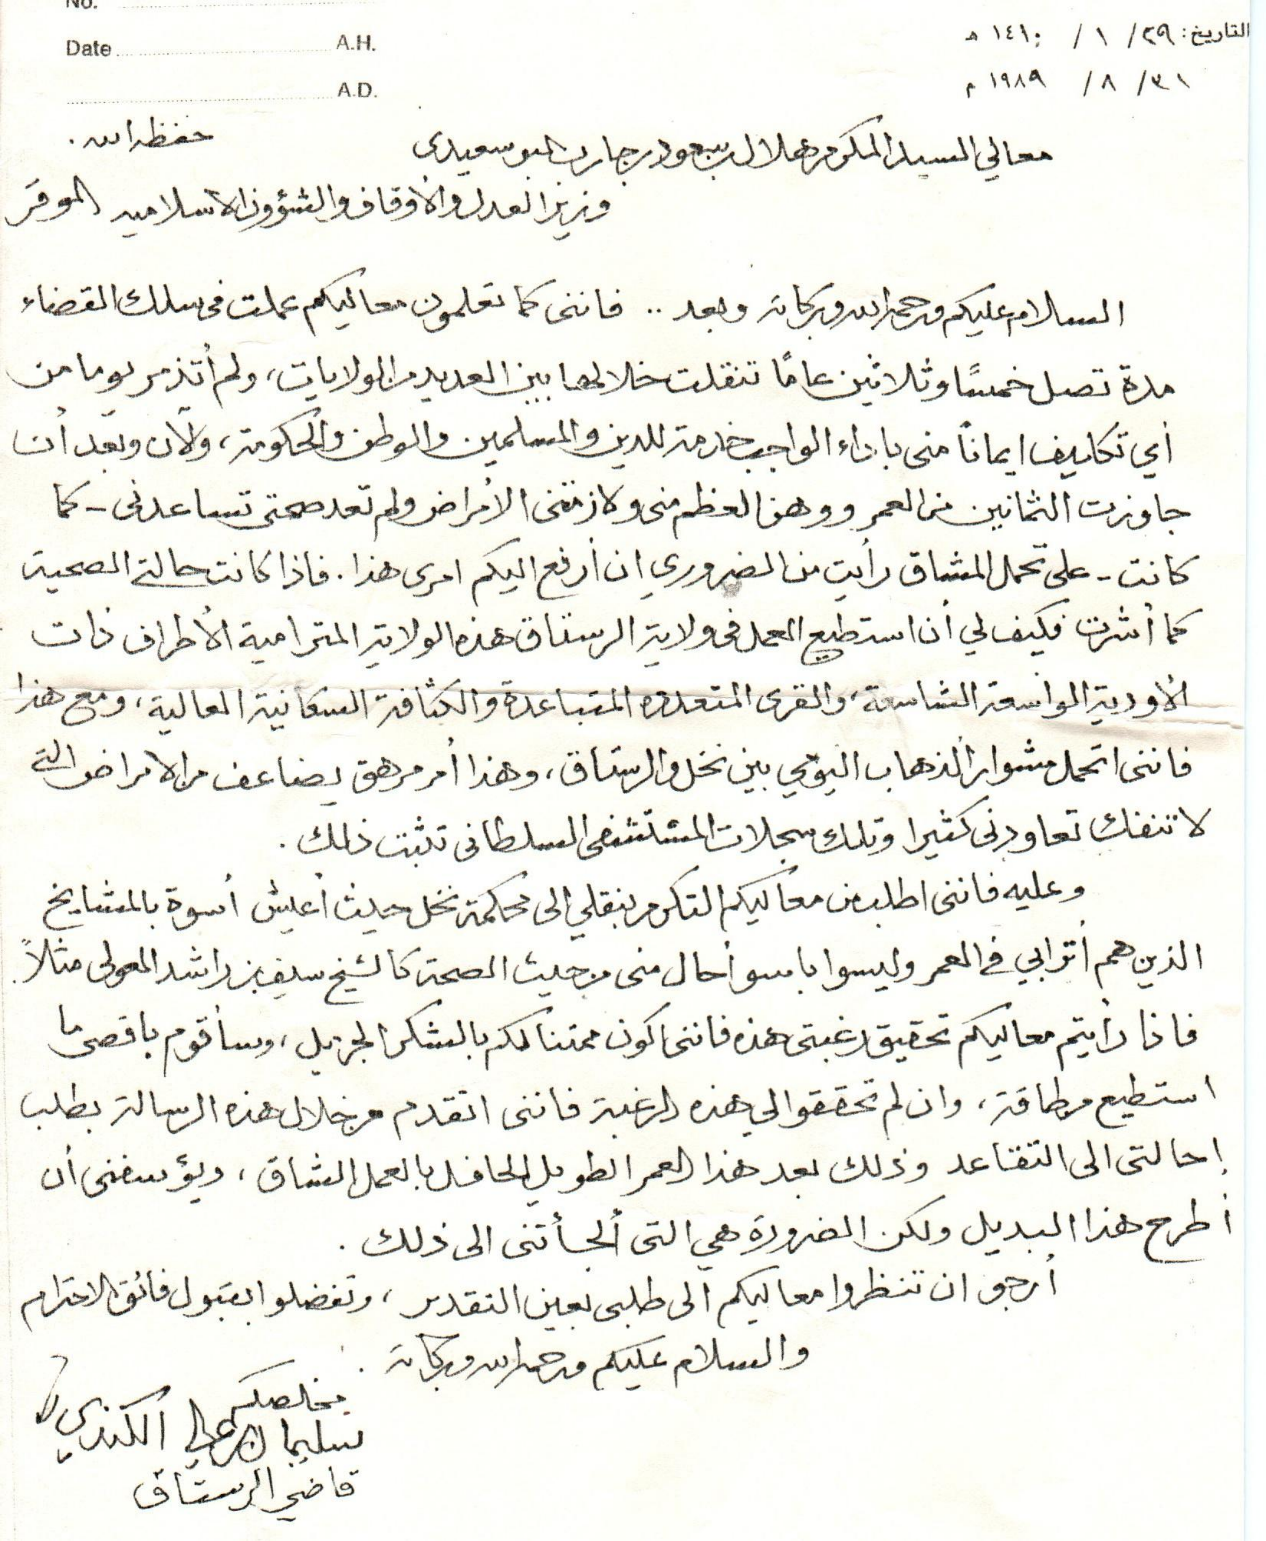 No.
Date A.H.
A.D.
التاريخ: ٢٩/ ١ / ١٤١٠ هـ
٣١/ ٨ / ١٩٨٩ م
معالي السيد المكرم هلال بن سعود بن حارب البوسعيدي حفظه الله.
وزير العدل والأوقاف والشؤون الاسلامية الموقر
السلام عليكم ورحمة الله وبركاته وبعد .. فانني كما تعلمون معاليكم عملت في سلك القضاء
مدة تصل خمسًا وثلاثين عامًا تنقلت خلالها بين العديد من الولايات، ولم أتذمر يوما من
أي تكليف ايمانًا مني باداء الواجب خدمة للدين والمسلمين والوطن والحكومة، والآن وبعد أن
جاوزت الثمانين من العمر ووهن العظم مني ولازمتني الأمراض ولم تعد صحتي تساعدني - كما
كانت - على تحمل المشاق رأيت من الضروري ان أرفع اليكم امري هذا. فاذا كانت حالتي الصحية
كما أشرت فكيف لي أن استطيع العمل في ولاية الرستاق هذه الولاية المترامية الأطراف ذات
الأودية الواسعة الشاسعة، والقرى المتعددة المتباعدة والكثافة السكانية العالية، ومع هذا
فانني اتحمل مشوار الذهاب اليومي بين نخل والرستاق، وهذا أمر مرهق يضاعف من الامراض التي
لا تنفك تعاودني كثيرا وتلك سجلات المستشفى السلطاني تثبت ذلك.
وعليه فانني اطلب من معاليكم التكرم بنقلي الى محكمة نخل حيث أعيش أسوة بالمشايخ
الذين هم أترابي في العمر وليسوا باسوأ حال مني من حيث الصحة كالشيخ سيف بن راشد المعولي مثلاً.
فاذا رأيتم معاليكم تحقيق رغبتي هذه فانني اكون ممتنا لكم بالشكر الجزيل، وسأقوم باقصى ما
استطيع من طاقة، وان لم تحققوا لي هذه الرغبة فانني اتقدم من خلال هذه الرسالة بطلب
إحالتي الى التقاعد وذلك بعد هذا العمر الطويل الحافل بالعمل الشاق، ويؤسفني أن
أطرح هذا البديل ولكن الضرورة هي التي ألجأتني الى ذلك.
أرجو ان تنظروا معاليكم الى طلبي بعين التقدير، وتفضلوا بقبول فائق الاحترام
والسلام عليكم ورحمة الله وبركاته.
مخلصكم
سليمان بن علي الكندي
قاضي الرستاق